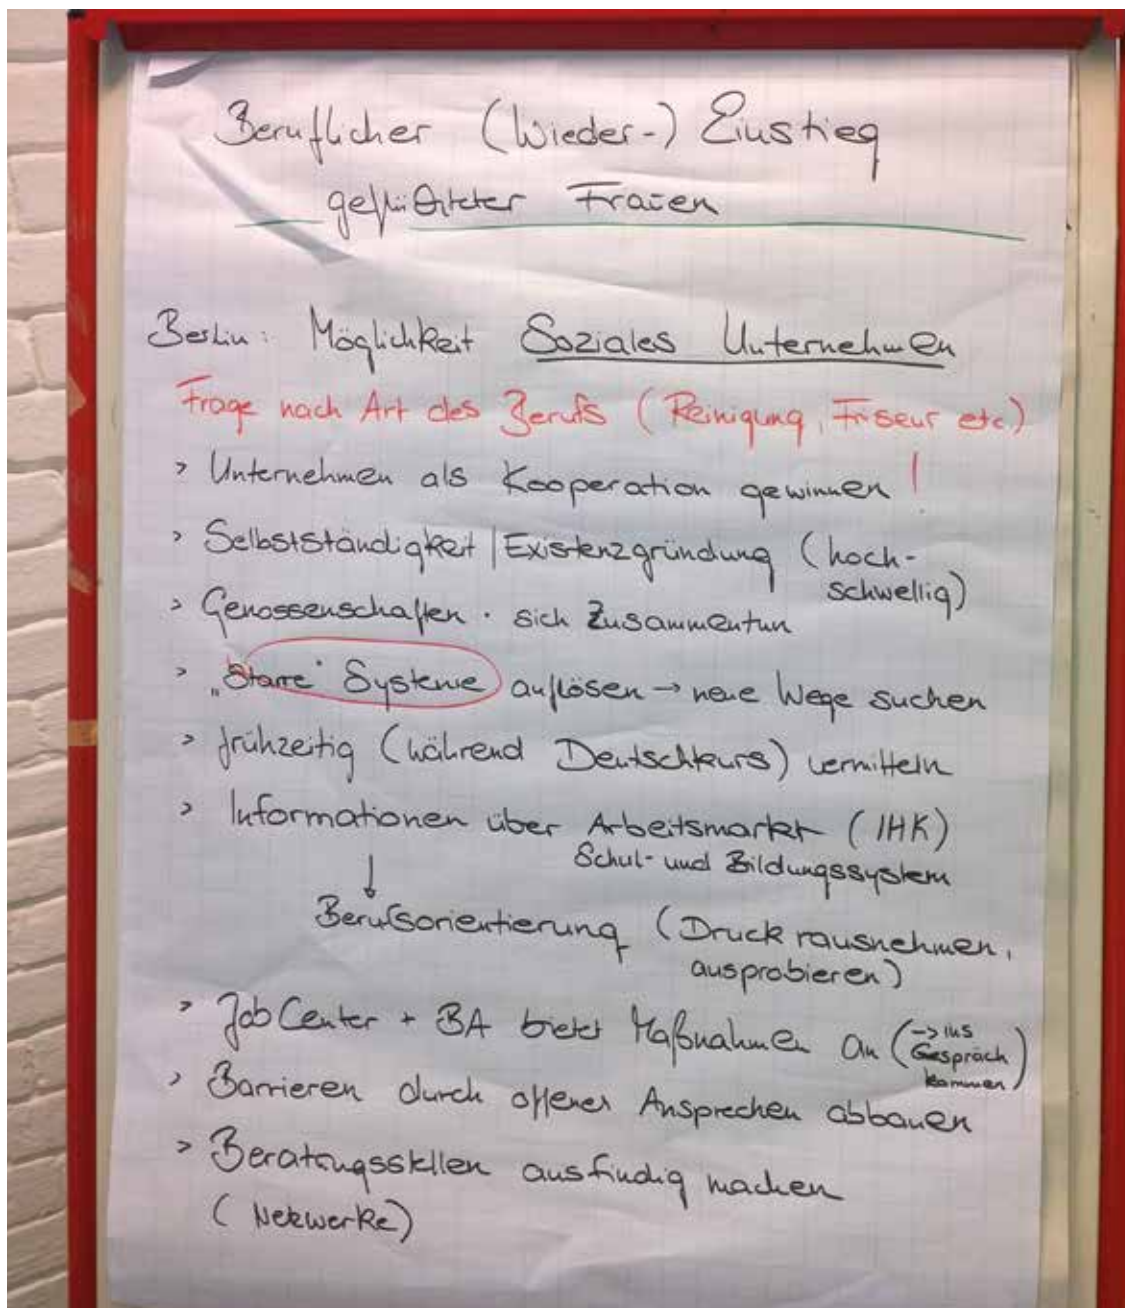 Beruflicher (Wieder-) Einstieg
geflüchteter Frauen
Berlin: Möglichkeit Soziales Unternehmen
Frage nach Art des Berufs (Reinigung, Friseur etc.)
> Unternehmen als Kooperation gewinnen !
> Selbstständigkeit | Existenzgründung (hoch-
schwellig)
> Genossenschaften · sich Zusammentun
> „Starre“ Systeme auflösen → neue Wege suchen
> frühzeitig (während Deutschkurs) vermitteln
> Informationen über Arbeitsmarkt (IHK)
Schul- und Bildungssystem
↓
Berufsorientierung (Druck rausnehmen,
ausprobieren)
> JobCenter + BA bietet Maßnahmen an (-> ins
Gespräch
kommen)
> Barrieren durch offenes Ansprechen abbauen
> Beratungsstellen ausfindig machen
(Netzwerke)